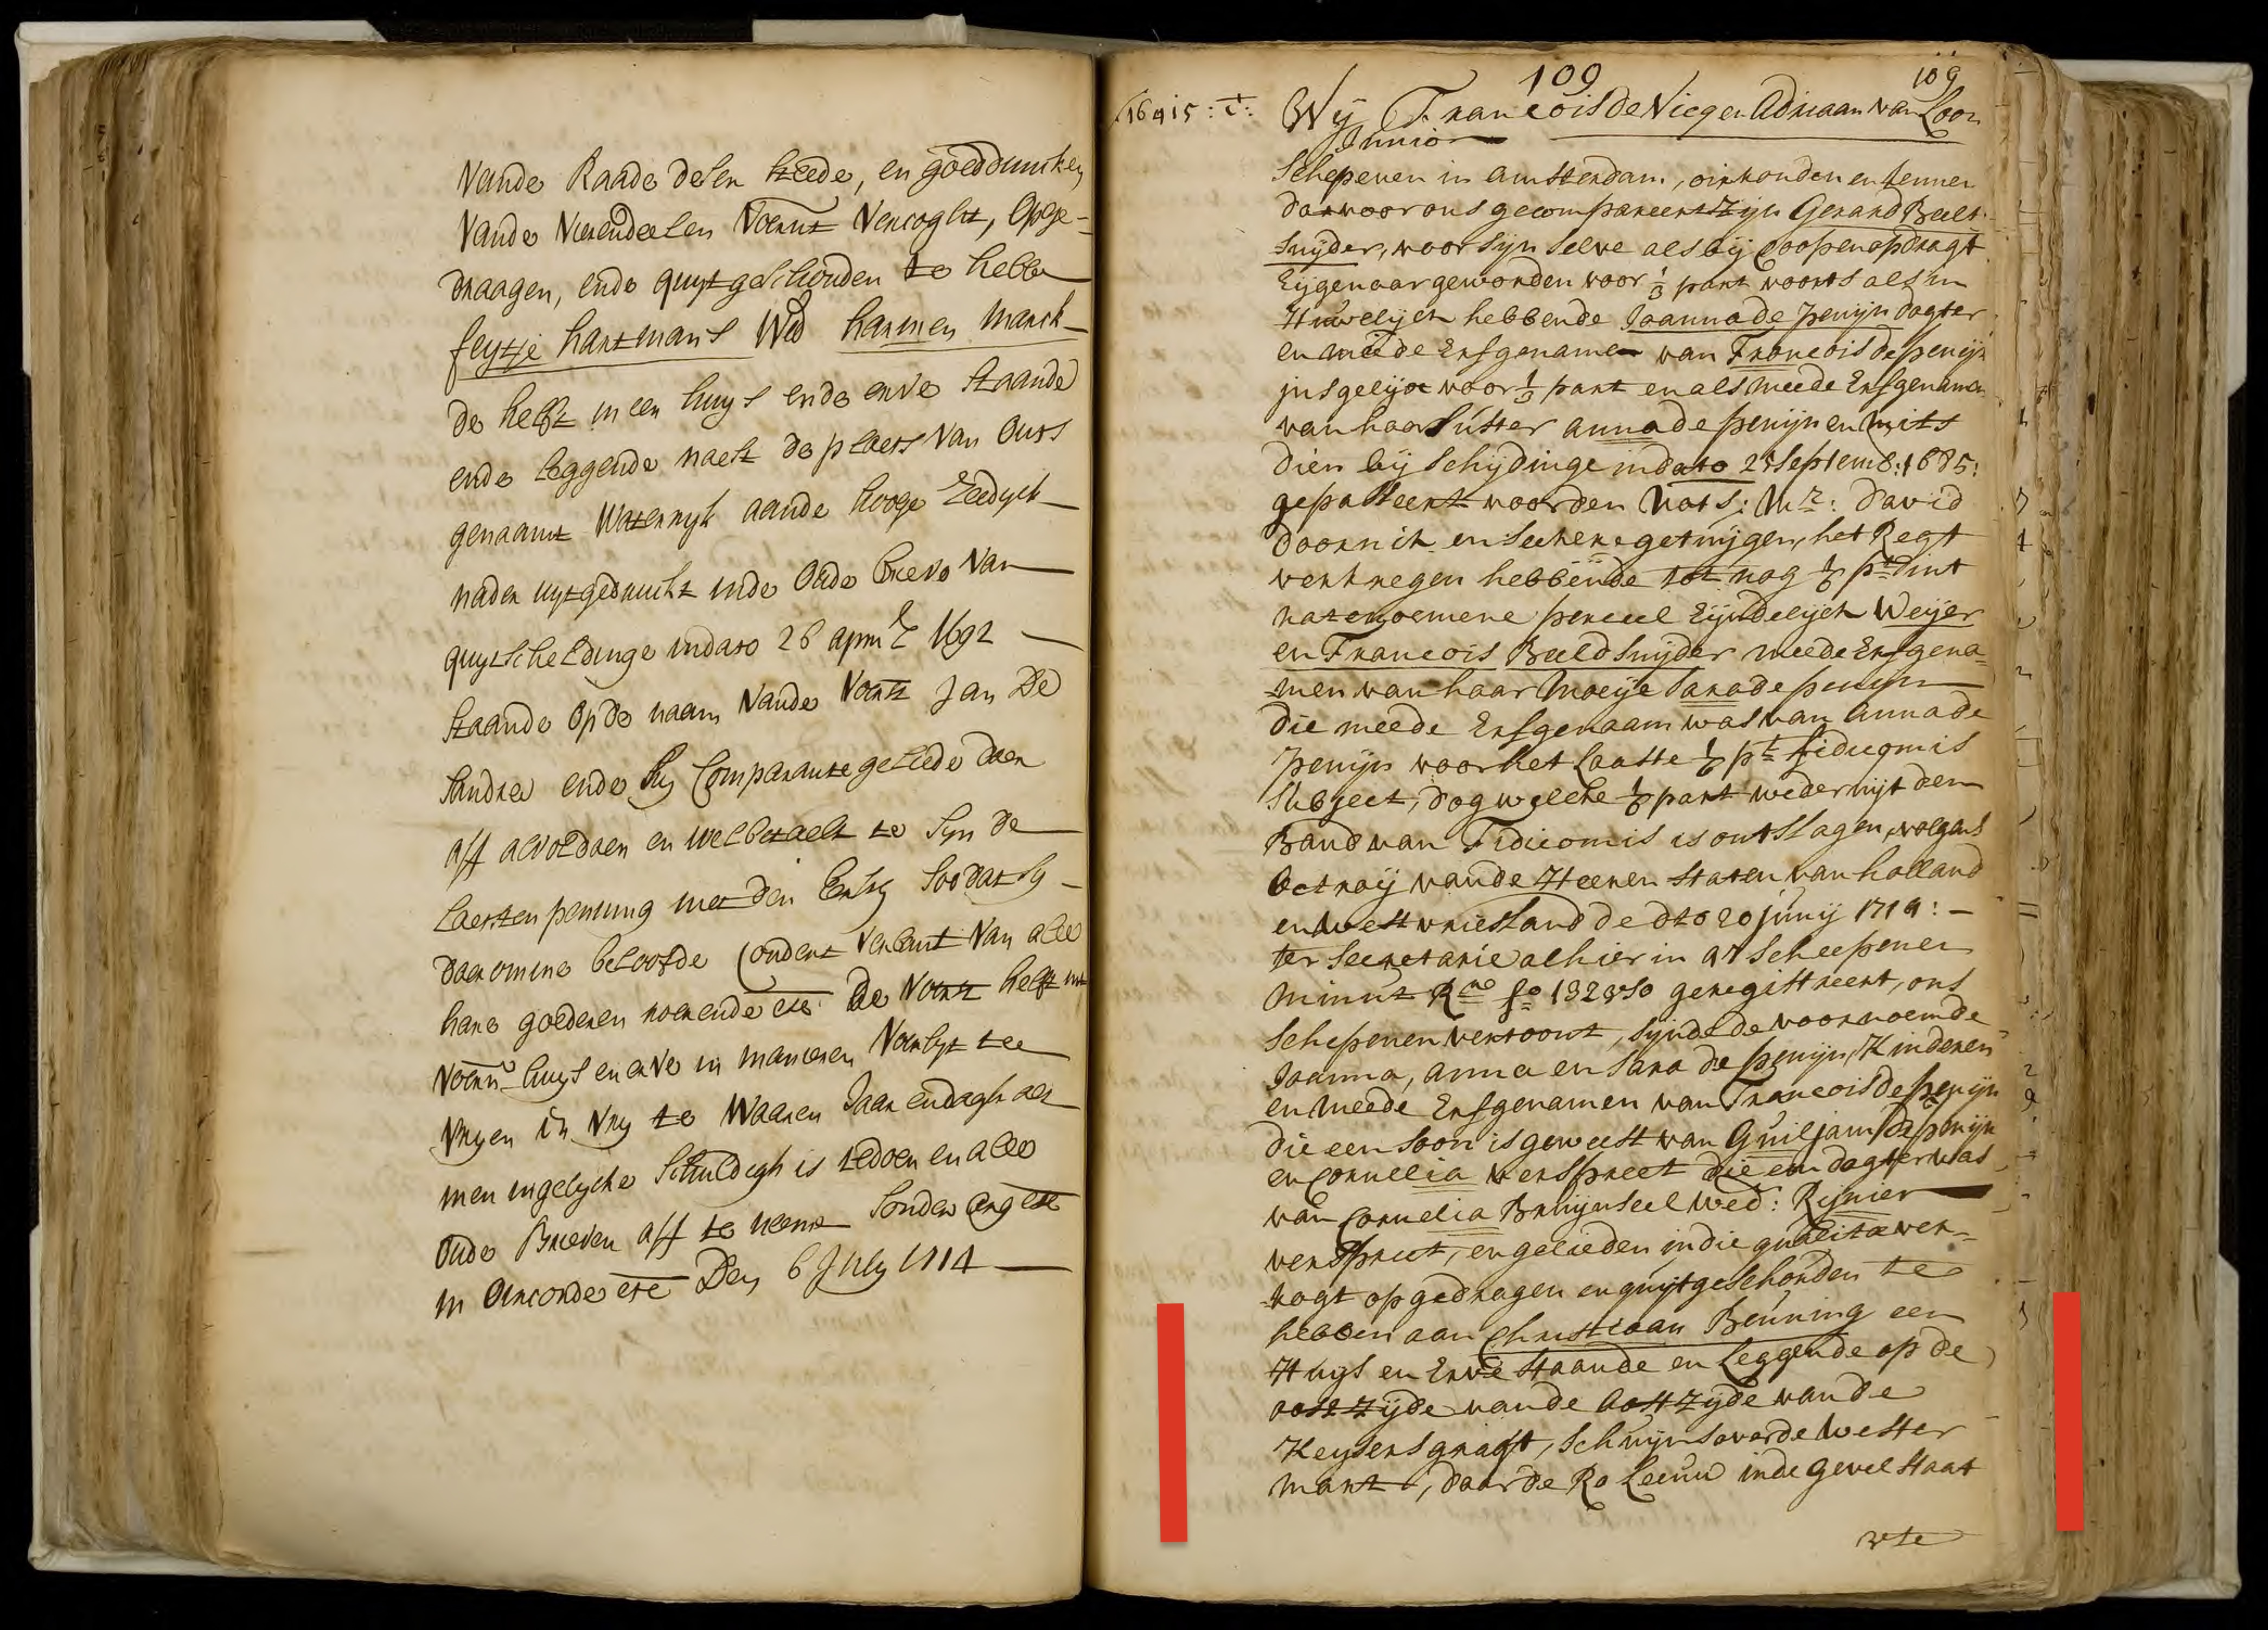 vande Raade deser steede, en goeddunken
vande Vierendeelen Voernt Vercoght, Opge-
draagen, ende quytgeschouden te hebben
feytje hartmans Wed harmen Marck
de helft in een huys ende erve staande
ende leggende naest de plaets van Outs
genaamt Waterryk aande hooge Zeedyck
nader uytgedruckt inde Oude brieve van
quytscheldinge indato 26 april 1692
staande op de naam vande Voernt Jan De
ende Sy Comparante geliede daer
aff al voldaen en wel betaelt te Syn de
laesten penning met den Ersten Soodat Sy
daeromme beloofde onder verbant van alle
hare goederen roerende etc de Voernt helft int
voern huys en erve in manieren Voerseyt te
vryen in vry te Waaren Jaar en dagh als
men ingelycke Schuldigh is te doen en alle
oude Brieven aff te neemen Sonder Erg etc
in Oirconde etc Den 6 July 1714
109 109
Wij Francois de Vicq en Adriaan van Loon
Junior
Schepenen in amsterdam, oirkonden en kennen
dat voor ons gecompareert zijn Gerard Beelt
Snijder, voor sijn selve als bij Coop en opdragt
Eijgenaar geworden voor 1/3 part voorts als in
Huwelijck hebbende Joanna de penijn dogter
en meede Erfgenamen van Francois de penijn
jnsgelijcx voor 1/3 part en als meede Erfgenamen
van haar Suster anna de penijn en mits
dien bij Schijdinge in dato 25 Septemb: 1685:
gepasseert voor den Nots: Mr: David
Doornick en seekere getuijgen, het Regt
verkregen hebbende tot nog 1/6 pt dint
natenoemene perceel Eijndelijck Weijer
en Francois Beeldsnijder meede Erfgena-
men van haar Moeije Sara de penijn
die meede Erfgenaam was van Anna de
penijn voor het Laatste 1/6 pt fidicomis
Subject, dog welcke 1/6 part weder uijt den
Band van Fidicomis is ontslagen, volgens
Octroij vande Heeren Staten van holland
en Westvriesland de dto 20 junij 1714:
ter Secretarie alhier in 't 47 Scheepenen
Minut Rno fo 132 vso geregistreert, ons
Schepenen vertoont, sijnde de voornoemde
Joanna, anna en Sara de penijn, Kinderen
en meede Erfgenamen van Francois de penijn
die een Soon is geweest van Guiljam de penijn
en Cornelia verspreet die een dogter was
van Cornelia Bruijnseel wed: Rijnier
verspreet, en gelieden in die qualite ver-
kogt opgedragen en quijtgeschonden te
hebben aan Christiaan Beuning een
Huijs en Erve staande en Leggende op de
oostzijde vande Oostzijde vande
Keysersgragt, Schuijns over de Wester
markt, daar de Ro Leeuw inde gevel staat